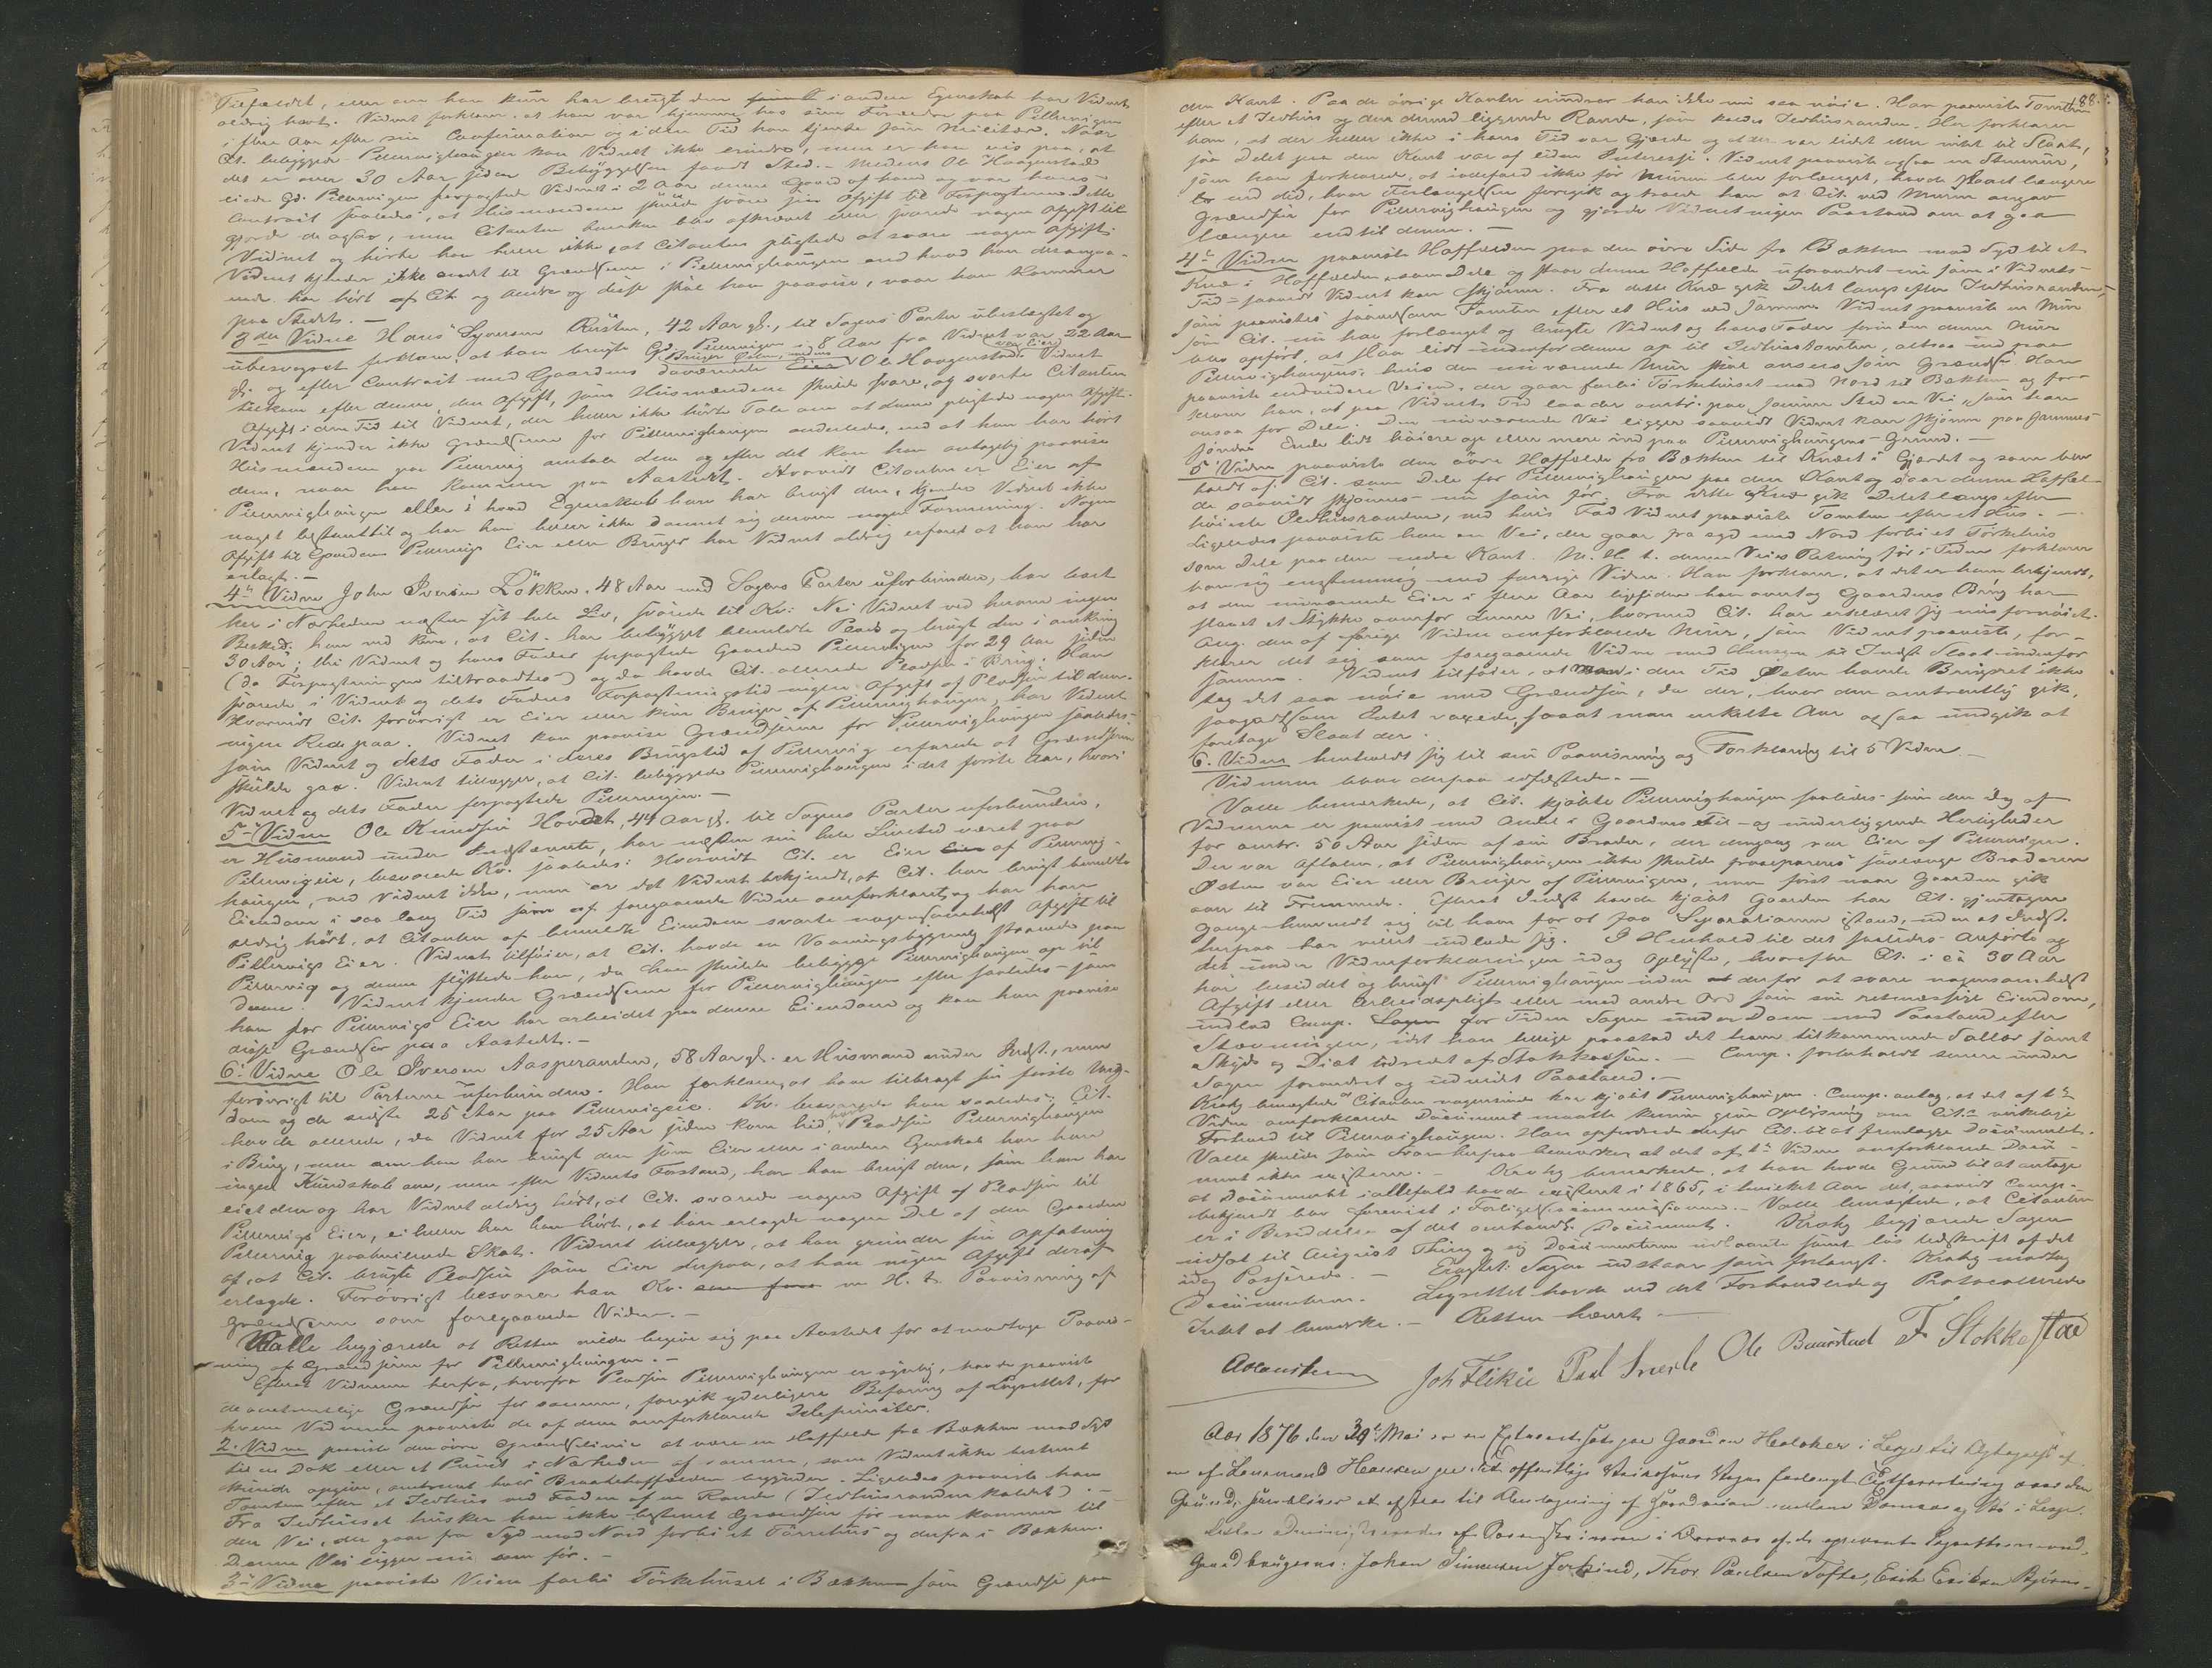 Tilfældet, eller om han kun har brugt den i anden Egenskab har Vidnet
aldrig hørt. Vidnet forklarer, at han var hjemme hos sine Forældre paa Pillervigen
i flere Aar efter sin Confirmation og i den Tid han tjente som Militær. Naar
Cit. bebyggede Pillervighaugen kan Vidnet ikke erindre, men er han vis paa, at
det er over 30 Aar siden Bebyggelsen fandt Sted. - Medens Ole Haagenstad
eiede Gd. Pillervigen forpagtede Vidnet i 2 Aar denne Gaard af ham og var hans
Contract saaledes, at Husmændene skulde svare sin Afgift til Forpagteren. Dette
gjorde de ogsaa, men Citanten hverken blev afkrævet eller svarede nogen Afgift til
Vidnet og hørte han heller ikke, at Citanten pligtede at svare nogen Afgift.
Vidnet kjender ikke andet til Grændserne i Pillervighaugen end hvad han desangaa-
ende har hørt af Cit. og Andre og disse skal han paavise, naar han kommer
paa Stedet. -
3die Vidne Hans Syversen Rusten, 42 Aar gl., til Sagens Parter ubeslægtet og
ubesvogret forklarer, at han brugte Gd. Pillervigen i 8 Aar fra Vidnet var 22 Aar
gl. og efter Contract med Gaardens daværende Bruger Ole Haagenstad var Eier Vidnet
tilkom efter denne den Afgift, som Husmændene skulde svare, og svarte Citanten
Afgift i den Tid til Vidnet, der heller ikke hørte Tale om at denne pligtede nogen Afgift.
Vidnet kjender ikke Grændserne for Pillervighaugen anderledes, end at han har hørt
Husmændene paa Pillervig omtale dem og efter det kan han antagelig paavise
dem, naar han kommer paa Aastedet. Hvorvidt Citanten er Eier af
Pillervighaugen eller i hvad Egenskab han har brugt den, kjender Vidnet ikke
noget bestemt til og har han heller ikke dannet sig derom nogen Formening. Nogen
Afgift til Gaarden Pillervigs Eier eller Bruger har Vidnet aldrig erfaret at han har
erlagt. -
4de Vidne John Iversen Løkken, 48 Aar med Sagens Parter uforbunden, har boet
her i Nærheden næsten sit hele Liv, svarede til Kv: Nei Vidnet ved herom ingen
Besked; han ved kun, at Cit. har bebygget bemeldte Plads og brugt den i omkring
30 Aar; thi Vidnet og hans Fader forpagtede Gaarden Pillervigen for 29 Aar siden
(da Forpagtningen tiltraadtes) og da havde Cit. allerede Pladsen i Brug. Han
svarede i Vidnet og dets Faders Forpagtningstid ingen Afgift af Pladsen til dem.
Hvorvidt Cit. forøvrigt er Eier eller kun Bruger af Pillervighaugen, har Vidnet
ingen Rede paa. Vidnet kan paavise Grændserne for Pillervighaugen saaledes,
som Vidnet og dets Fader i deres Brugstid af Pillervig erfarede at Grændserne
skulde gaa. Vidnet tillægger, at Cit. bebyggede Pillervighaugen i det første Aar, hvori
Vidnet og dets Fader forpagtede Pillervigen. -
5te Vidne Ole Knudsen Hovdet, 44 Aar gl. til Sagens Parter uforbunden,
er Husmand under Indstævnte, har næsten sin hele Livstid været paa
Pillervigeie, besvarede Kv. saaledes: Hvorvidt Cit. er Eier af Pillervig-
haugen, ved Vidnet ikke, men er det Vidnet bekjendt, at Cit. har brugt bemeldte
Eiendom i saa lang Tid som af foregaaende Vidne omforklaret og har han
aldrig hørt, at Citanten af bemeldte Eiendom svarte nogensomhelst Afgift til
Pillervigs Eier. Vidnet tilføier, at Cit. havde en Vaaningsbygning staaende paa
Pillervig og denne flyttede han, da han skulde bebygge Pillervighaugen op til
denne. Vidnet kjender Grændserne for Pillervighaugen efter saaledes som
han for Pillervigs Eier har arbeidet paa denne Eiendom og kan han paavise
disse Grændser paa Aastedet. -
6te Vidne Ole Iversen Aasperanden, 58 Aar gl. er Husmand under Indst., men
forøvrigt til Parterne uforbunden. Han forklarer, at han tilbragt sin første Ung-
dom og de sidste 25 Aar paa Pillervigeie. Kv. besvarede han saaledes: Cit.
havde allerede, da Vidnet for 25 Aar siden kom hid, havt Pladsen Pillervighaugen
i Brug, men om han har brugt den som Eier eller i anden Egenskab har han
ingen Kundskab om, men efter Vidnets Forstand, har han brugt den, som han har
eiet den og har Vidnet aldrig hørt, at Cit. svarede nogen Afgift af Pladsen til
Pillervigs Eier, ei heller har han hørt, at han erlagde nogen Del af den Gaarden
Pillervig paahvilende Skat. Vidnet tillægger, at han grunder sin Opfatning
af, at Cit. brugte Pladsen som Eier derpaa, at han ingen Afgift deraf
erlagde. Forøvrigt besvarer han Kv. m. H. t. Paavisning af
Grændserne som foregaaende Vidner. -
Valle begjærede at Retten vilde begive sig paa Aastedet for at modtage Paavis-
ning af Grændserne for Pillervighaugen. -
Efterat Vidnerne herfra, hvorfra Pladsen Pillervighaugen er synlig, havde paavist
de omtrentlige Grændser for samme, foregik yderligere Befaring af Lagrettet, for
hvem Vidnerne paaviste de af dem omforklarede Delepunkter.
2. Vidne paaviste den øvre Grændselinie at være en Haffælde fra Bækken mod Syd
til en Dok eller et Punct i Nærheden af samme, som Vidnet ikke bestemt
kunde opgive, omtrent hvor Braatehaffælden begynder. Ligeledes paaviste han
Tomten efter et Ildhus ved Foden af en Rande (Ildhusranden kaldet). -
Fra Ildhuset husker han ikke bestemt Grændsen før man kommer til
den Vei, der gaar fra Syd mod Nord forbi et Tørkehus og derfra i Bækken.
Denne Vei ligger nu som før. -
3die Vidne paaviste Veien forbi Tørkehuset i Bækken som Grændse paa
188.
den Kant. Paa de øvrige Kanter mindes han ikke nu saa nøie. Han paaviste Tomten
efter et Ildhus og den derved liggende Rande, som kaldes Ildhusranden. Her forklarer
han, at der heller ikke i hans Tid var Gjerde og at der var lidet eller intet til Slaat,
saa Delet paa den Kant var af liden Interesse. Vidnet paaviste ogsaa en Stenmur,
som han forklarede, at iallefald ikke før Muren blev forlænget, havde staaet længere
end did, hvor Forlængelsen foregik og troede han at Cit. ved Muren angav
Grændsen for Pillervighaugen og gjorde Vidnet ingen Paastand om at gaa
længere end til denne. -
4de Vidne paaviste Haffælden paa den øvre Side fra Bækken mod Syd til et
Knæ i Haffælden som Dele og staar denne Haffælde uforandret nu som i Vidnets
Tid - saavidt Vidnet kan skjønne. Fra dette Knæ gik Delet langs efter Ildhusranden,
som paavistes saavelsom Tomten efter et Hus ved samme. Vidnet paaviste en Mur
som Cit. nu har forlænget og brugte Vidnet og hans Fader forinden denne Mur
blev opført, at slaa lidt indenfor denne op til Ildhustomten, altsaa ind paa
Pillervighaugens, hvis den nuværende Mur skal ansees som Grændse. Han
paaviste endvidere Veien, der gaar forbi Tørkehuset mod Nord til Bækken og for-
klarer han, at paa Vidnets Tid laa der omtr. paa samme Sted en Vei, som han
ansaa for Dele. Den nuværende Vei ligger saavidt Vidnet kan skjønne paa sammes
søndre Ende lidt høiere op eller mere ind paa Pillervighaugens Grund. -
5. Vidne paaviste den øvre Haffælde fra Bækken til Knæet i Gjerdet og som blev
holdt af Cit. som Dele for Pillervighaugen paa den Kant og staar denne Haffæl-
de saavidt skjønnes nu som før. Fra dette Knæ gik Delet langs efter
høieste Ildhusranden, ved hvis Fod Vidnet paaviste Tomten efter et Hus. -
Ligeledes paaviste han en Vei, der gaar fra Syd mod Nord forbi et Tørkehus
som Dele paa den nedre Kant. M. H. t. denne Veis Retning før i Tiden forklarer
han sig enstemmig med forrige Vidne. Han forklarer, at det er ham bekjendt,
at den nuværende Eier i flere Aar ligesiden han overtog Gaardens Brug har
slaaet et Stykke ovenfor denne Vei, hvormed Cit. har erklæret sig misfornøiet.
Ang. den af forrige Vidne omforklarede Mur, som Vidnet paaviste, for-
klarer det sig som foregaaende Vidne med Hensyn til Indst. Slaat indenfor
samme. Vidnet tilføier, at man i den Tid Østen havde Bruget ikke
tog det saa nøie med Grændsen, da der, hvor den omtrentlig gik,
saagodtsom Intet voxede, saaat man enkelte Aar ogsaa undgik at
foretage Slaat der.
6. Vidne henholdt sig til sin Paavisning og Forklaring til 5 Vidne. -
Vidnerne bleve derpaa edfæstede. -
Valle bemærkede, at Cit. kjøbte Pillervighaugen saaledes som den Dag af
Vidnerne er paavist med Andel i Gaardens Til- og underliggende Herligheder
for omtr. 50 Aar siden af sin Broder, der dengang var Eier af Pillervigen.
Der var Aftalen, at Pillervighaugen ikke skulde fraseparares saalænge Broderen
Østen var Eier eller Bruger af Pillervigen, men først naar Gaarden gik
over til Fremmede. Efterat Indst. havde kjøbt Gaarden har Cit. gjentagne
Gange henvendt sig til ham for at faa Separationen istand, uden at Indst.
herpaa har villet indlade sig. I Henhold til det saaledes Anførte og
det under Vidneforklaringen idag Oplyste, hvorefter Cit. i ca 30 Aar
har besiddet og brugt Pillervighaugen uden derfor at svare nogensomhelst
Afgift eller Arbeidspligt eller med andre Ord som sin retmæssige Eiendom,
indlod Comp. for Tiden Sagen under Dom med Paastand efter
Stævningen, idet han tillige paastod det ham tilkommende Sallær samt
Skyds og Diæt udredet af Statskassen. - Comp. forbeholdt senere under
Sagen forandret og udvidet Paastand. -
Krohg benægtede at Citanten nogensinde har kjøbt Pillervighaugen. Comp. antog, at det af 1ste
Vidne omforklarede Document maatte kunne give Oplysning om Cit.s virkelige
Forhold til Pillervighaugen. Han opfordrede derfor Cit. til at fremlægge Documentet.
Valle skulde som Svar herpaa bemærke, at det af 1ste Vidne omforklarede Docu-
ment ikke existerer. - Krohg bemærkede, at han havde Grund til at antage
at Documentet iallefald havde existeret i 1865, i hvilket Aar det, saavidt Comp.
bekjendt blev forevist i Forligelsescommissionen. - Valle benægtede, at Citanten
er i Besiddelse af det omhandl. Document. Krohg begjærede Sagen
udsat til August Thing og sig Documenterne udlaante samt løs Udskrift af det
idag Passerede. - Eragtet: Sagen udstaar som forlangt. Krohg modtog
Documenterne. Lagrettet havde ved det Forhandlede og Protocollerede
Intet at bemærke. - Retten hævet. -
Joh Flikie Ole Baarstad F Stokkestad
Aar 1876 den 29de Mai er en Extraret sat paa Gaarden i Lesje til
en af Lensmand Hansen paa det offentlige Veivæsens Vegne forlangt over den
Grund, som bliver at til Omlægning af Gaardveien mellem Domaas og i Lesje.
af i af de opnævnte Lagrettesmænd,
Gaardbrugerne. Johan Simensen Jorkind, Thor Paulsen Tofte, Erik Eriksen Bjørns-